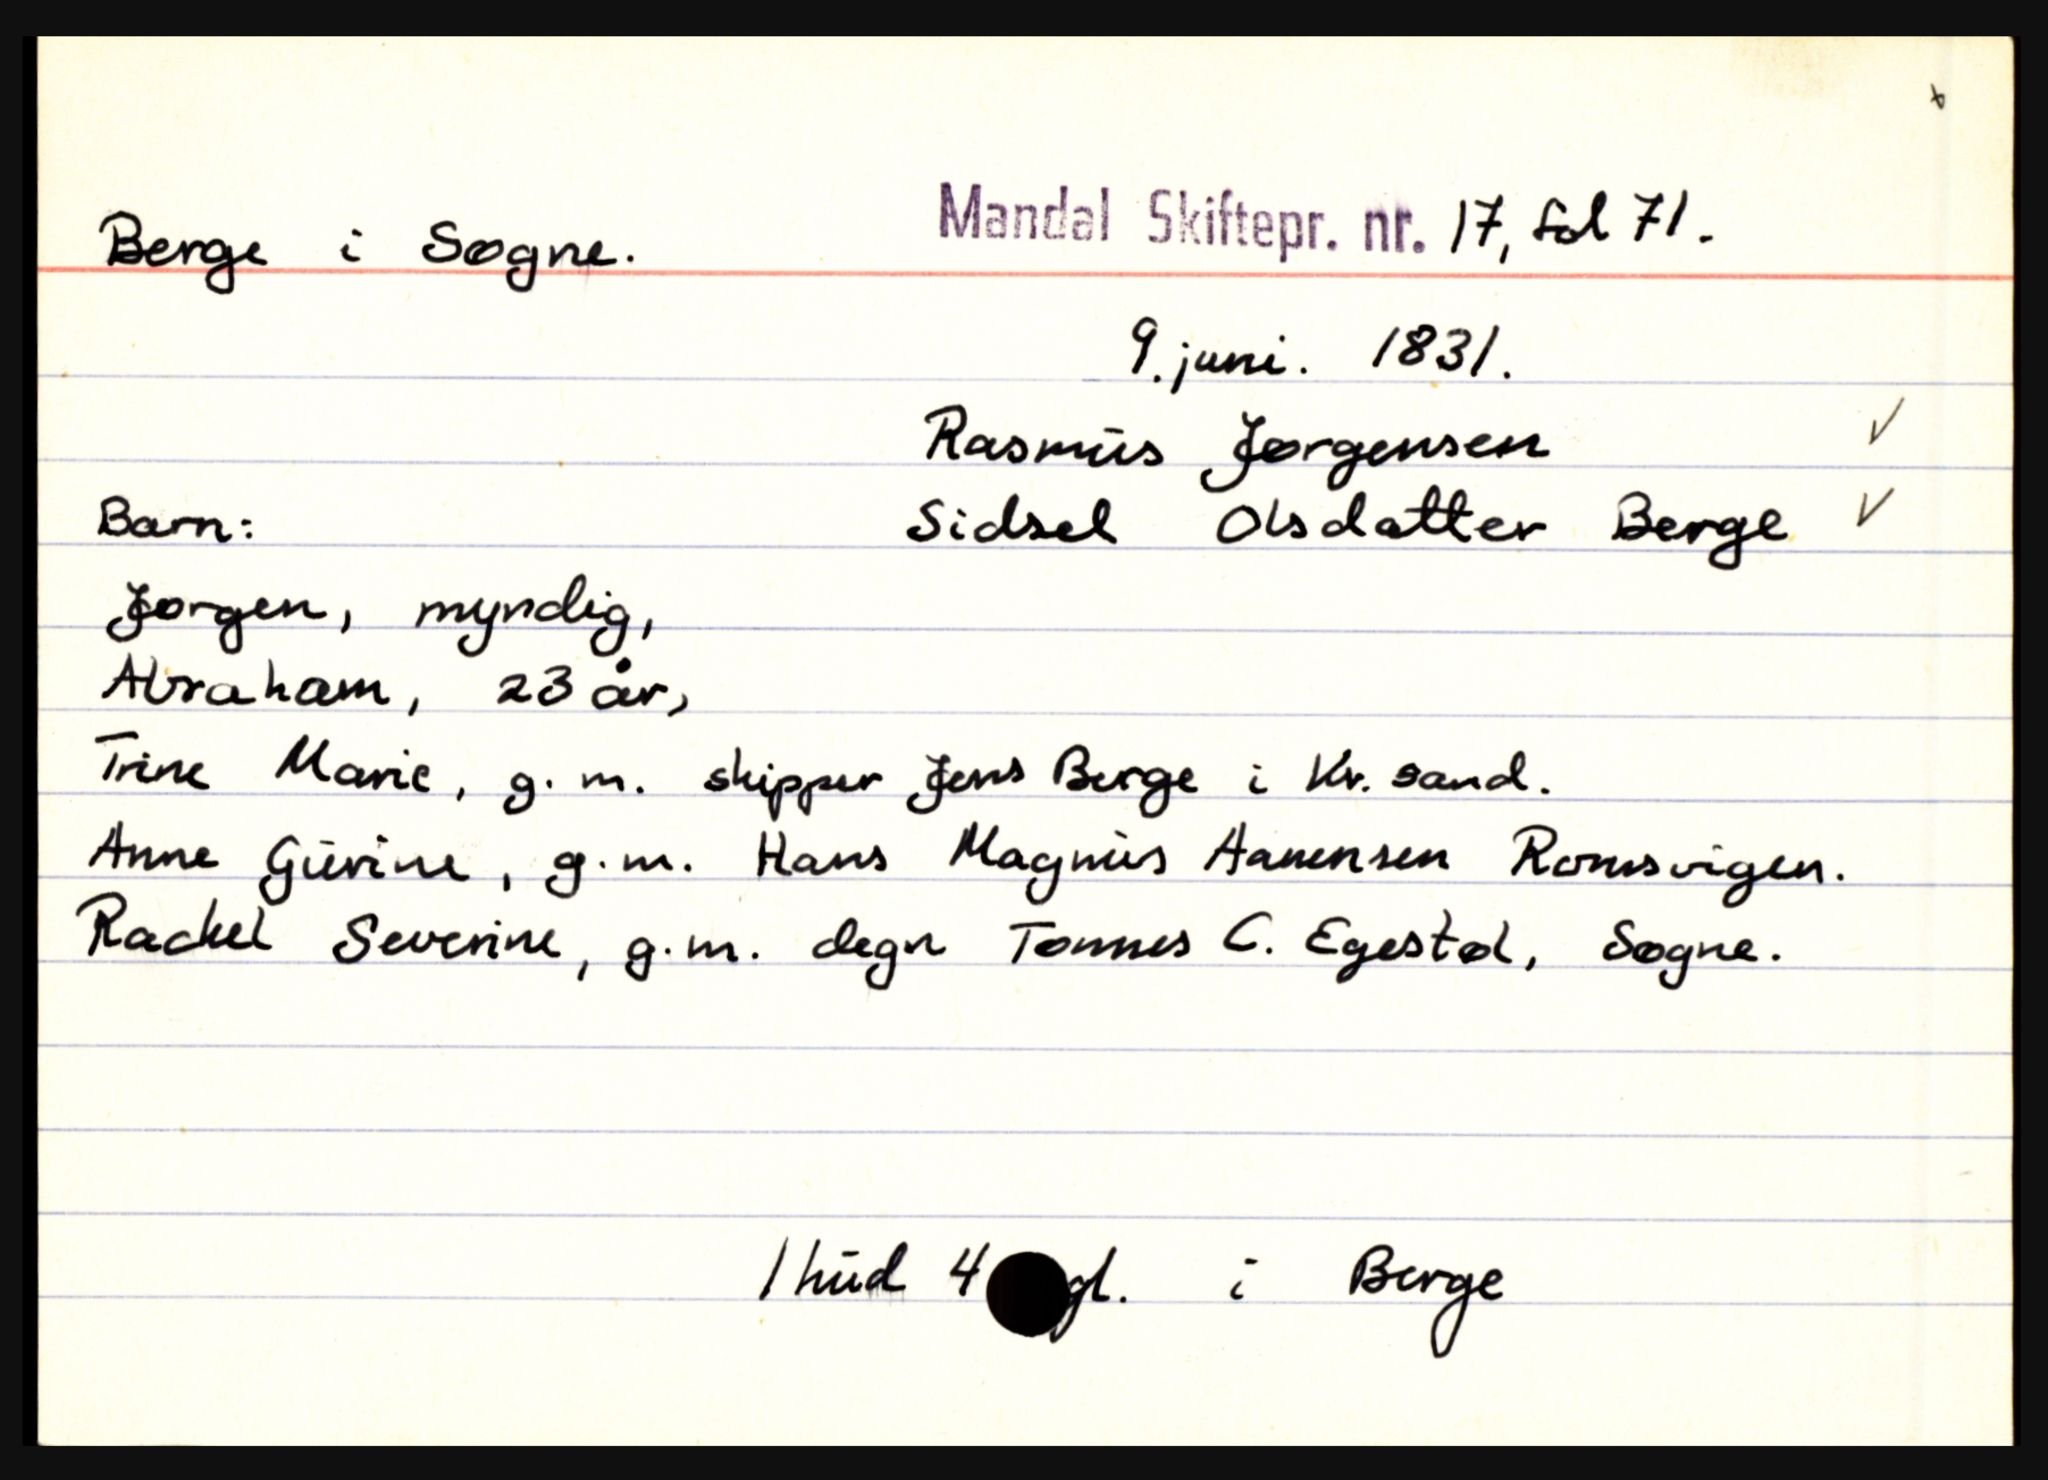 Berge i Søgne. Mandal Skiftepr. nr. 17, fol 71.
9. juni. 1831.
Rasmus Jørgensen ✓
Barn: Sidsel Olsdatter Berge ✓
Jørgen, myndig,
Abraham, 23 år,
Trine Marie, g. m. skipper Jens Berge i Kr. sand.
Anne Gurine, g. m. Hans Magnus Aanensen Romsvigen.
Rachel Severine, g. m. degn Tønnes C. Egestøl, Søgne.
1 hud 4 gl. i Berge